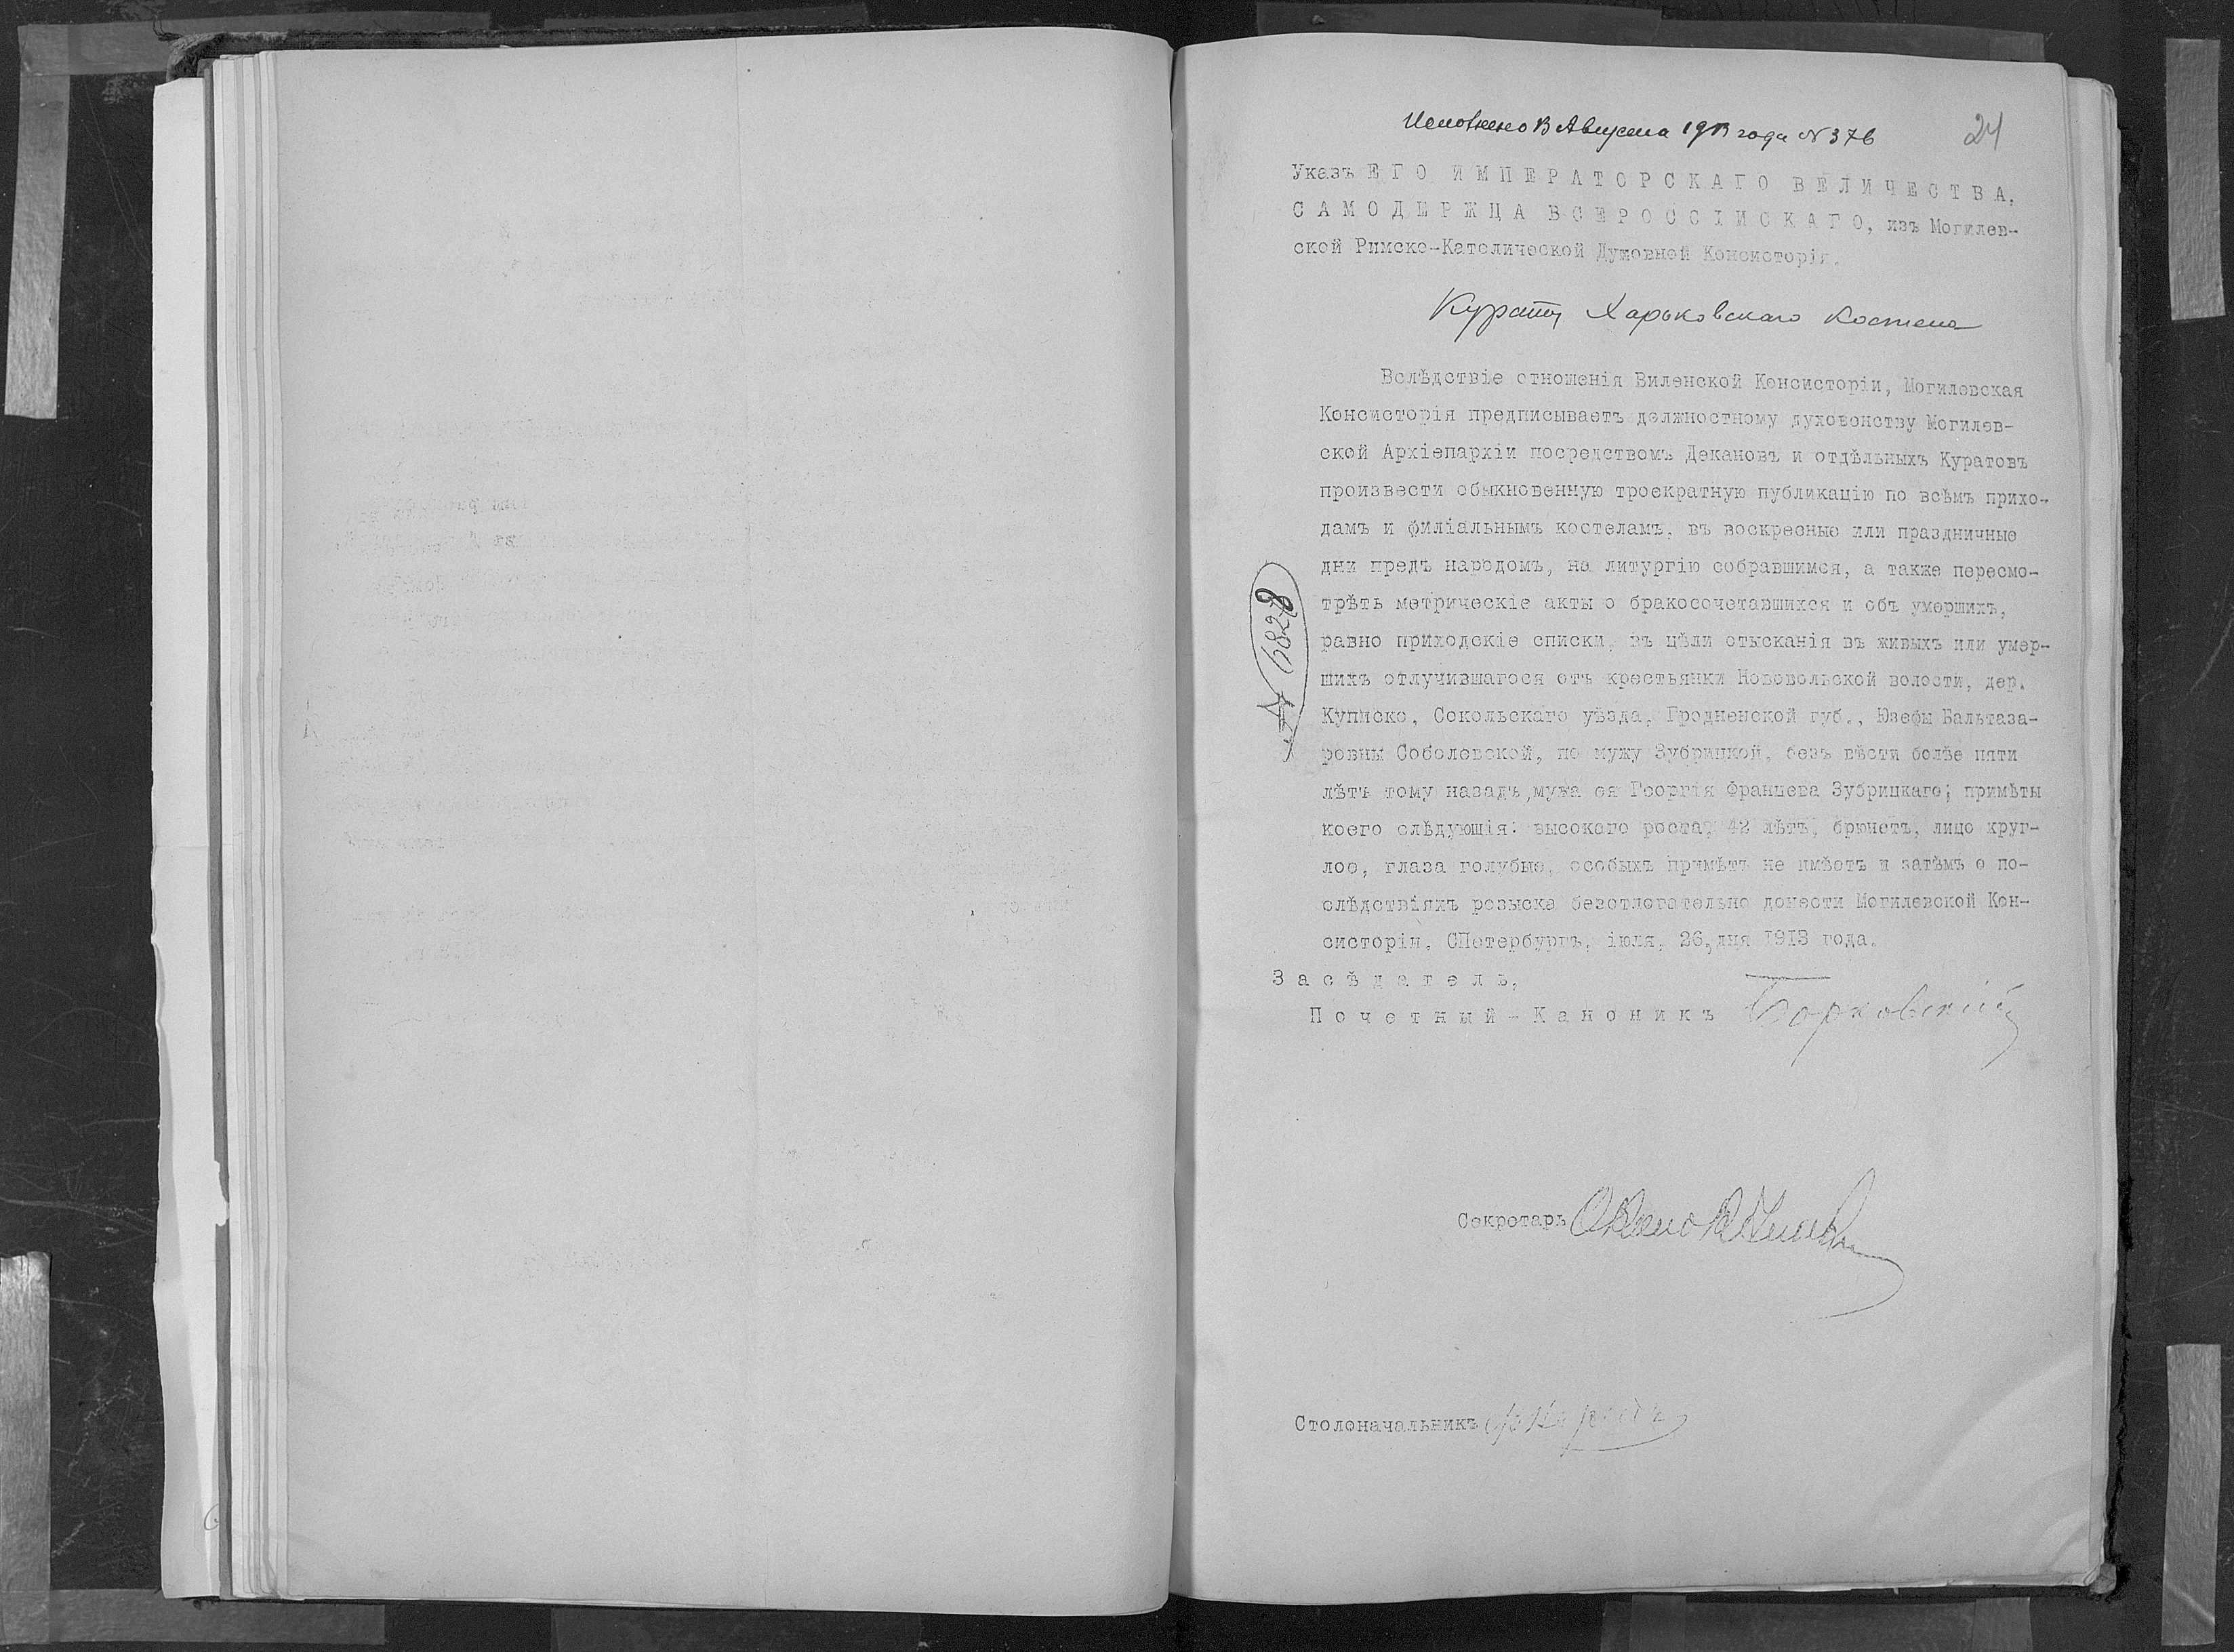 Исполнено 13 Августа 1913 года № 376
24
Указъ ЕГО ИМПЕРАТОРСКАГО ВЕЛИЧЕСТВА,
САМОДЕРЖЦА ВСЕРОССІЙСКАГО, изъ Могилев-
ской Римско-Католической Духовной Консисторіи.
Курату Харьковскаго Костела
Вслѣдствіе отношенія Виленской Консисторіи, Могилевская
Консисторія предписываетъ должностному духовенству Могилев-
ской Архіепархіи посредствомъ Декановъ и отдѣльныхъ Куратовъ
произвести обыкновенную троекратную публикацію по всѣмъ прихо-
дамъ и филіальнымъ костеламъ, въ воскресные или праздничные
дни предъ народомъ, на литургію собравшимся, а также пересмо-
трѣть метрическіе акты о бракосочетавшихся и объ умершихъ,
равно приходскіе списки, въ цѣли отысканія въ живыхъ или умер-
шихъ отлучившагося отъ крестьянки Нововольской волости, дер.
Куписко, Сокольскаго уѣзда, Гродненской губ., Юзефы Бальтаза-
ровны Соболевской, по мужу Зубрицкой, безъ вѣсти болѣе пяти
лѣтъ тому назадъ, мужа ея Георгія Францева Зубрицкаго; примѣты
коего слѣдующія: высокаго роста, 42 лѣтъ, брюнетъ, лицо круг-
лое, глаза голубые, особыхъ примѣтъ не имѣетъ и затѣмъ о по-
слѣдствіяхъ розыска безотлогательно донести Могилевской Кон-
систоріи. СПетербургъ, іюля, 26, дня 1913 года.
Засѣдатель,
Почетный-Каноникъ Борковскій
№ 6828
Секретарь
Столоначальникъ